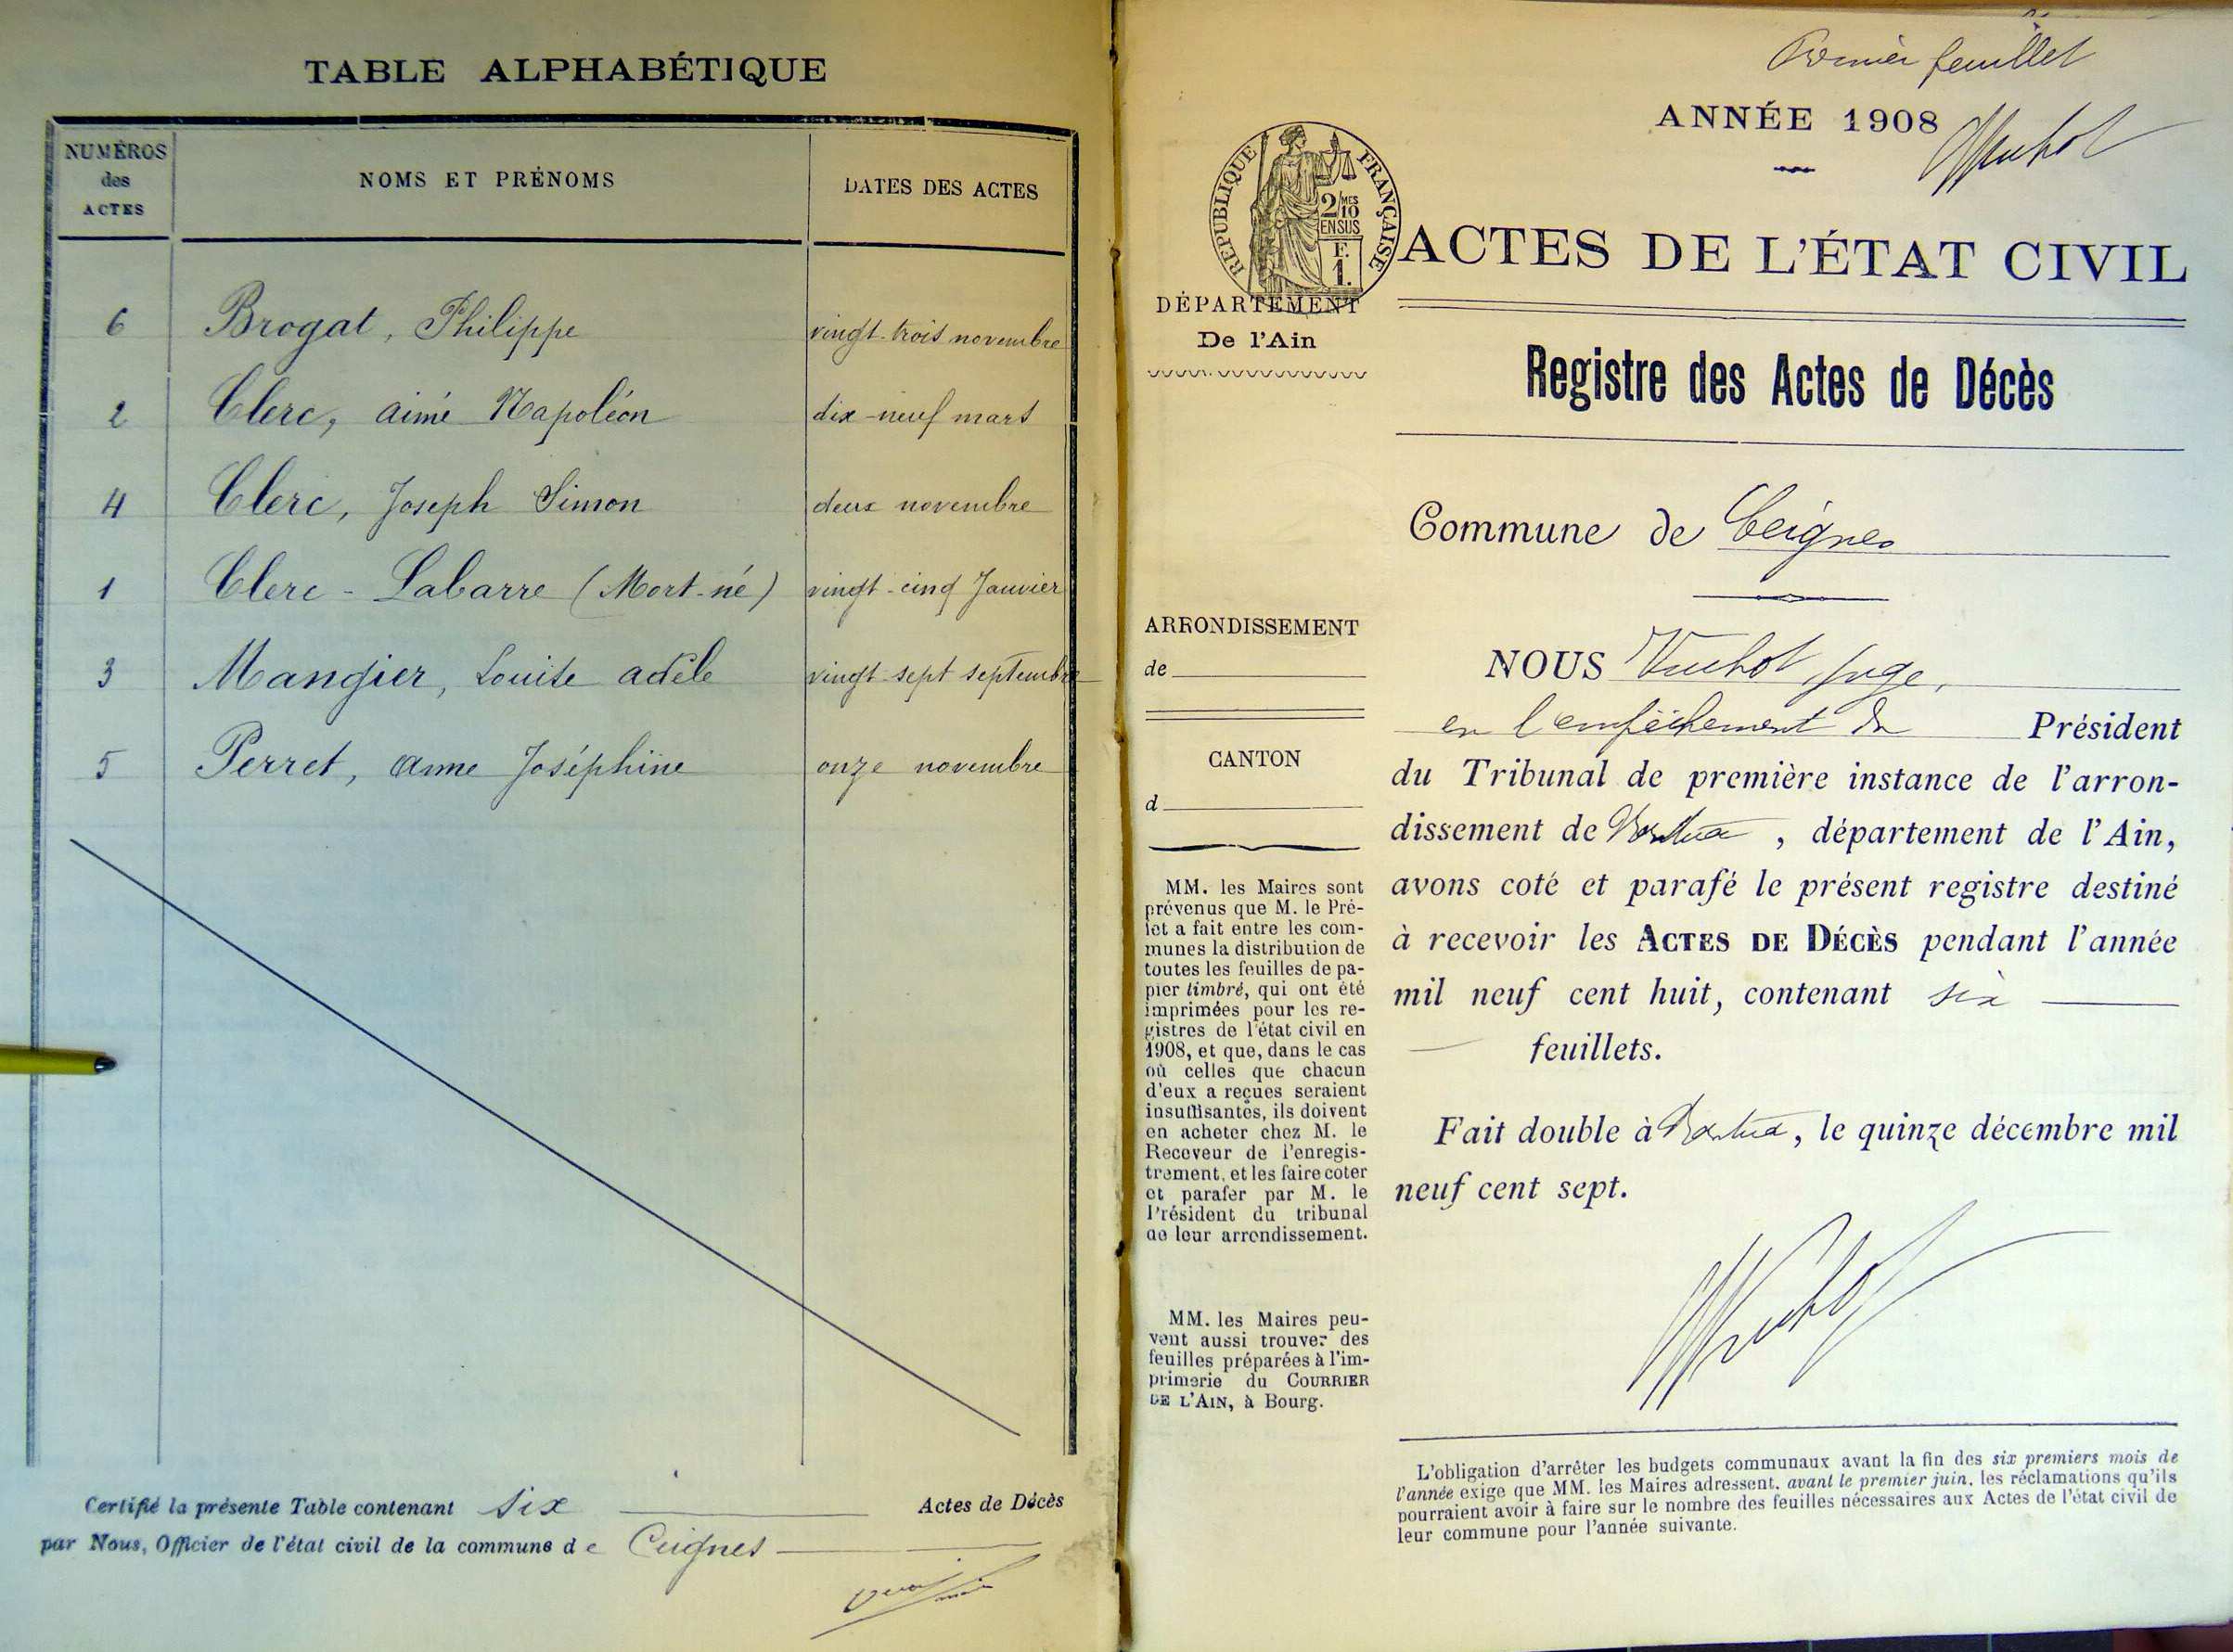 TABLE ALPHABÉTIQUE
NUMÉROS des ACTES
NOMS ET PRÉNOMS
DATES DES ACTES
6 Brogat, Philippe vingt-trois novembre
2 Clerc, aimé Napoléon dix-neuf mars
4 Clerc, Joseph Simon deux novembre
1 Clerc - Labarre (Mort-né) vingt-cinq Janvier
3 Mangier, Louise adèle vingt-sept septembre
5 Perret, anne Joséphine onze novembre
Certifié la présente Table contenant six Actes de Décès
par Nous, Officier de l'état civil de la commune de Ceignes
Premier feuillet
ANNÉE 1908
RÉPUBLIQUE FRANÇAISE
2/10 MES
EN SUS
F.
1.
ACTES DE L'ÉTAT CIVIL
DÉPARTEMENT
De l'Ain
Registre des Actes de Décès
Commune de Ceignes
ARRONDISSEMENT
de
CANTON
d
MM. les Maires sont
prévenus que M. le Pré-
fet a fait entre les com-
munes la distribution de
toutes les feuilles de pa-
pier timbré, qui ont été
imprimées pour les re-
gistres de l'état civil en
1908, et que, dans le cas
où celles que chacun
d'eux a reçues seraient
insuffisantes, ils doivent
en acheter chez M. le
Receveur de l'enregis-
trement, et les faire coter
et parafer par M. le
Président du tribunal
de leur arrondissement.
MM. les Maires peu-
vent aussi trouver des
feuilles préparées à l'im-
primerie du COURRIER
DE L'AIN, à Bourg.
NOUS Vuchot, juge,
en l'empêchement du Président
du Tribunal de première instance de l'arron-
dissement de Nantua, département de l'Ain,
avons coté et parafé le présent registre destiné
à recevoir les ACTES DE DÉCÈS pendant l'année
mil neuf cent huit, contenant six
feuillets.
Fait double à Nantua, le quinze décembre mil
neuf cent sept.
L'obligation d'arrêter les budgets communaux avant la fin des six premiers mois de
l'année exige que MM. les Maires adressent, avant le premier juin, les réclamations qu'ils
pourraient avoir à faire sur le nombre des feuilles nécessaires aux Actes de l'état civil de
leur commune pour l'année suivante.